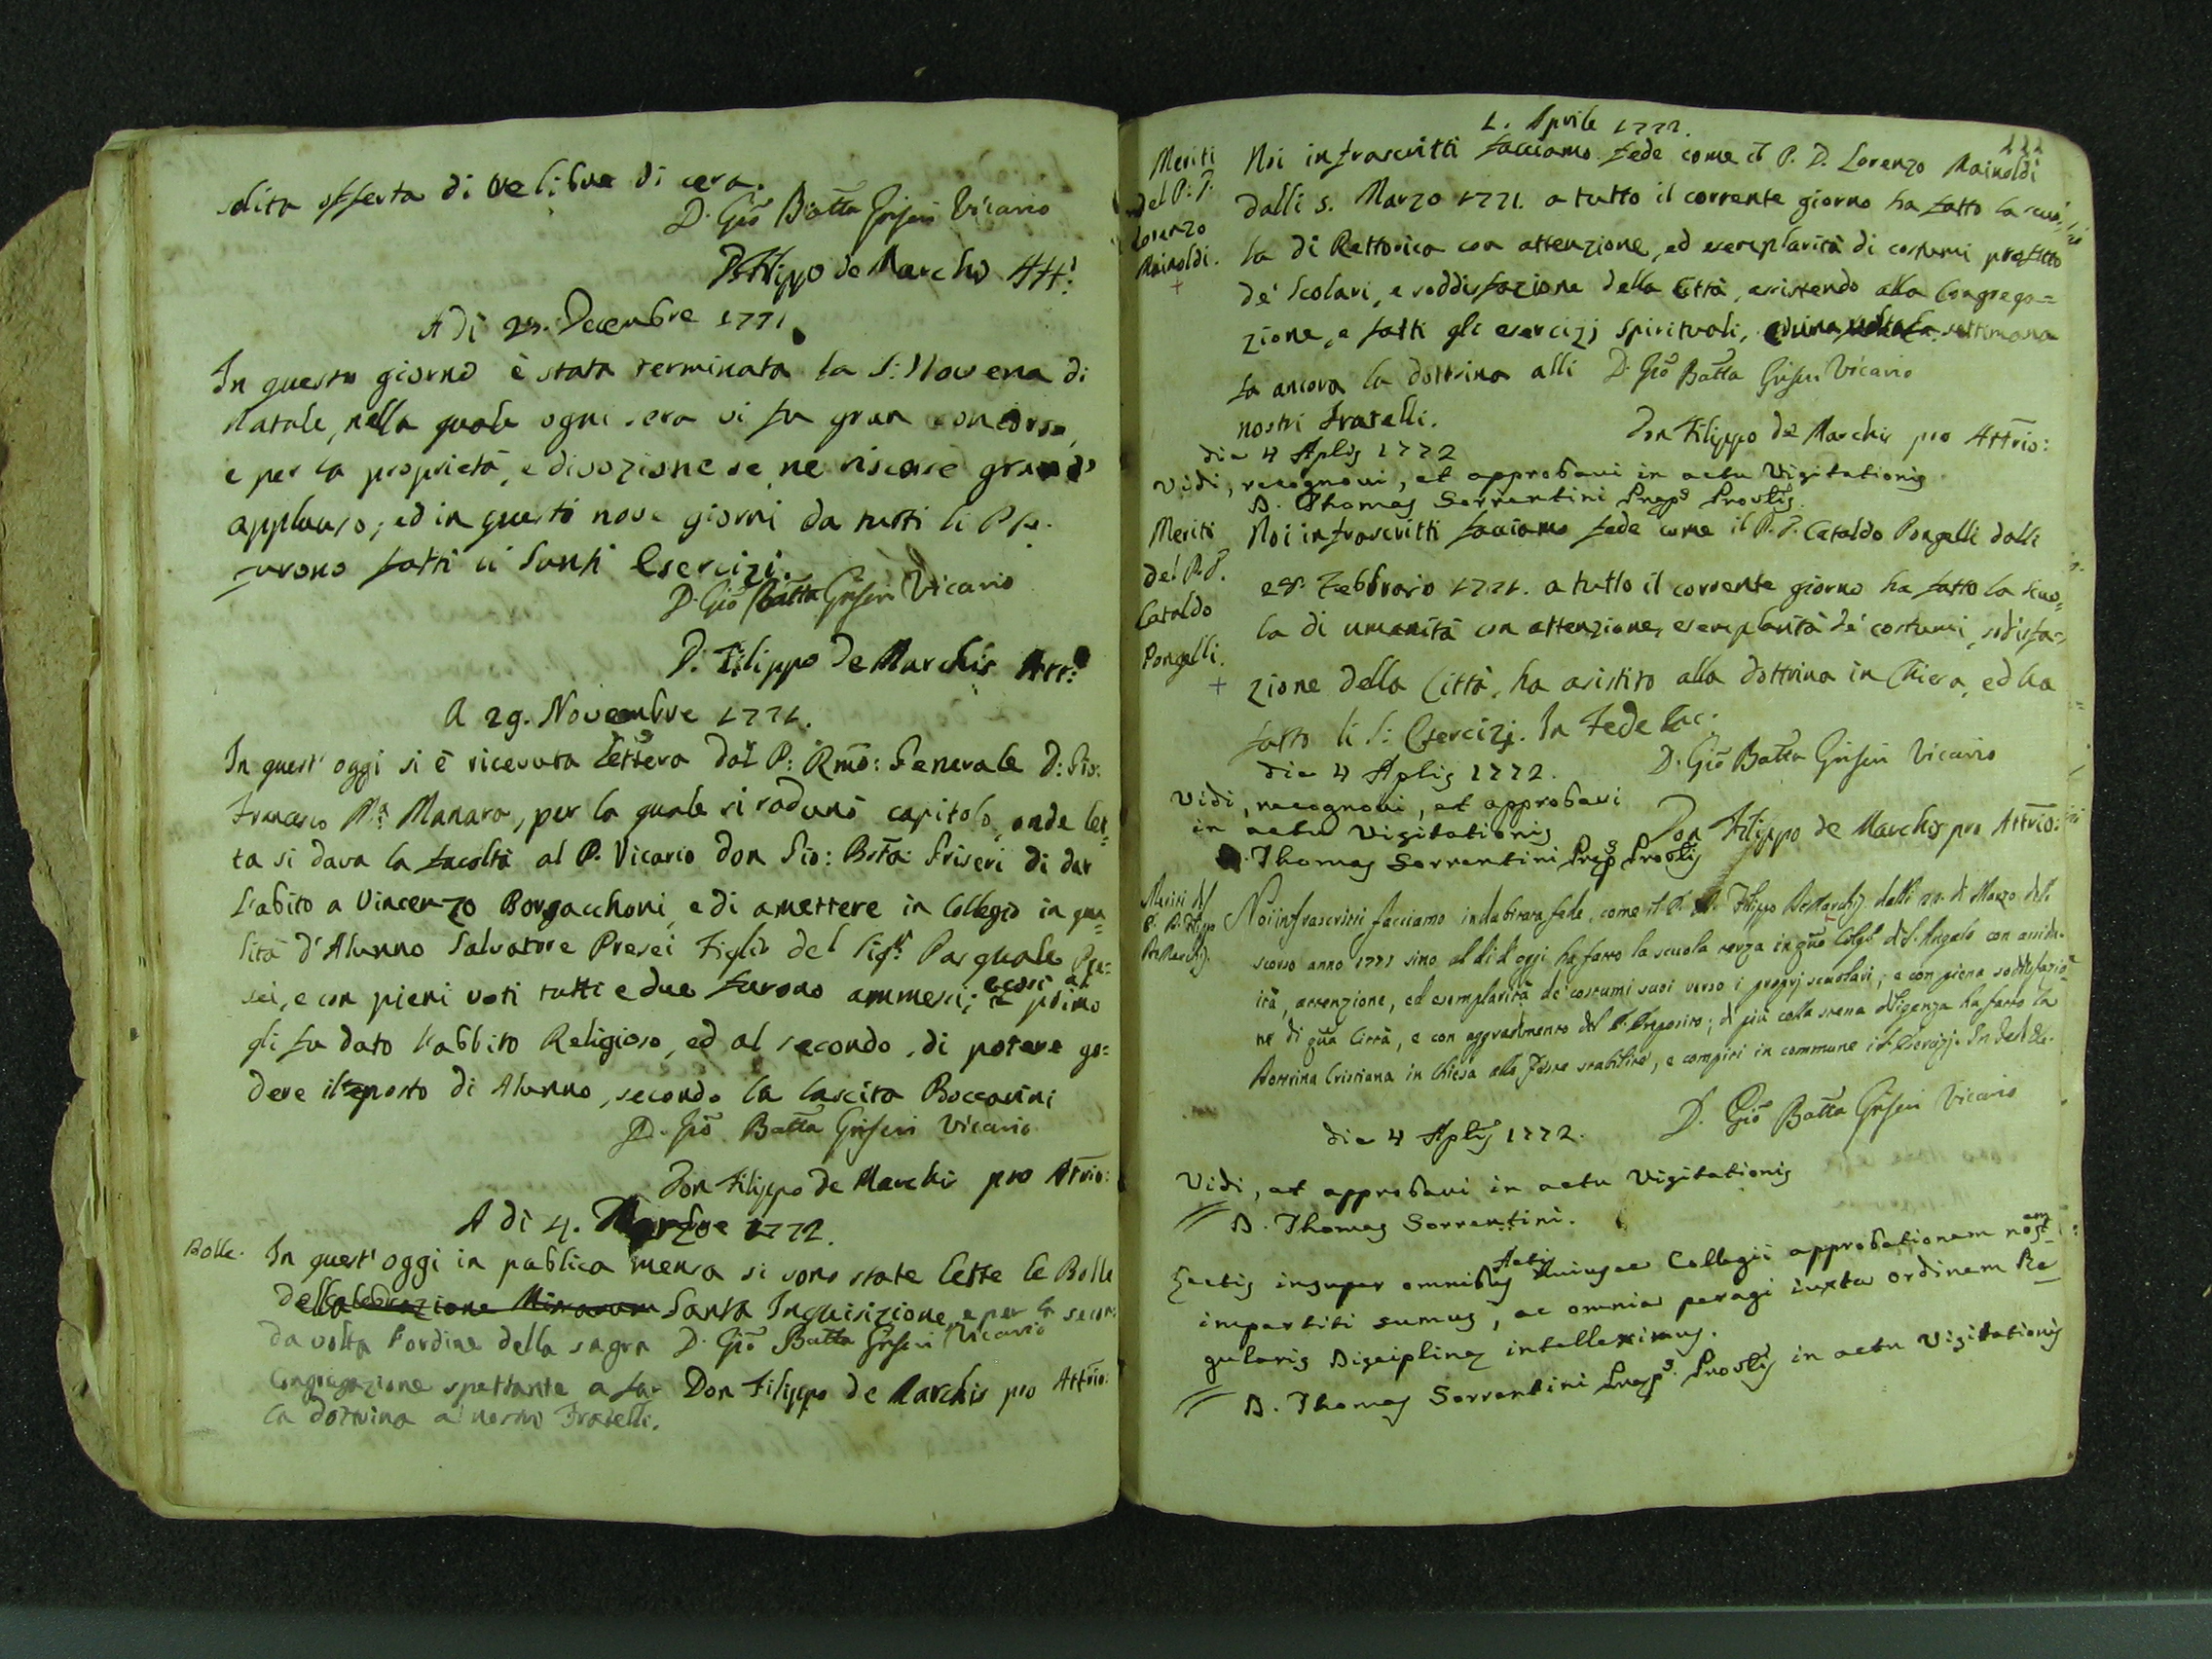 solita offerta di tre libre di cera.
D. Gio Batta Griseri Vicario
D. Filippo de Marchis Att:
A di 23. Decembre 1771
In questo giorno è stata terminata la S: Novena di
Natale, nella quale ogni sera vi fu gran concorso,
e per la proprietà, e divozione se ne riscosse grande
applauso; ed in questi nove giorni da tutti li PP.
furono fatti li Santi Esercizi.
D. Gio Batta Griseri Vicario
D. Filippo De Marchis Att:
A 29. Novembre 1771.
In quest' oggi si è ricevuta lettera dal P: Rmo: Generale D: Gio:
Francesco Ma: Manara, per la quale si radunò capitolo, onde let=
ta si dava la facoltà al P. Vicario Don Gio: Bata: Griseri di dar
l'abito a Vincenzo Borgacchoni, e di amettere in Collegio in qua=
lità d'Alunno Salvatore Presei Figlio del Sigr: Pasquale Pre=
sei, e con pieni voti tutti e due furono ammessi; e così al primo
gli fu dato l'abbito Religioso, ed al secondo, di potere go=
dere il posto di Alunno, secondo la lascita Boccarini
D. Gio Batta Griseri Vicario
Don Filippo de Marchis pro Attrio:
A di 4. 1772.
Bolle. In quest' oggi in publica mensa si sono state lette le Bolle
della celebrazione Missarum Santa Inquisizione, e per la secon=
da volta l'ordine della sagra D. Gio Batta Griseri Vicario
Congregazione spettante a far Don Filippo de Marchis pro Attrio:
la dottrina a' nostri Fratelli.
111
1. Aprile 1772.
Meriti del P: P: Lorenzo Rainoldi. +
Noi infrascritti facciamo fede come il P. D. Lorenzo Rainoldi
dalli 5. Marzo 1771. a tutto il corrente giorno ha fatto la scuo=
la di Rettorica con attenzione, ed esemplarità di costumi profitto
de' Scolari, e soddisfazione della Città, assistendo alla Congrega=
zione, e fatti gli esercizj spirituali, settimana
fa ancora la dottrina alli D. Gio Batta Griseri Vicario
nostri Fratelli.
Don Filippo de Marchis pro Attrio:
die 4 Aplis 1772
Vidi, recognovi, et approbavi in actu Visitationis
D. Thomas Sorrentini Preps Provlis
Meriti del P. P. Cataldo Pongelli. +
Noi infrascritti facciamo fede come il P. P. Cataldo Pongelli dalli
28. Febbraio 1771. a tutto il corrente giorno ha fatto la scuo=
la di umanità con attenzione, esemplarità de' costumi, sodisfa=
zione della Città, ha asistito alla dottrina in Chiesa, ed ha
fatto li S: Esercizj. In Fede &c:
D. Gio Batta Griseri Vicario
die 4 Aplis 1772.
Vidi, recognovi, et approbavi
in actu Visitationis
Don Filippo de Marchis pro Attrio:
D. Thomas Sorrentini Preps Provlis
Meriti del P. D. Filippo DeMarchis
Noi infrascritti facciamo indubitata fede, come il P. D. Filippo DeMarchis dalli 20. di Marzo dello
scorso anno 1771 sino al di d'oggi ha fatto la scuola terza in qto Collgo di S. Angelo con assidu-
ità, attenzione, ed esemplarità de' costumi suoi verso i proprj scuolari; e con piena soddisfazio
ne di qua Città, e con aggradimento del P. Preposito; di più colla stessa diligenza ha fatto la
Dottrina Cristiana in Chiesa alle Feste stabilite, e compiti in commune i S. Esercizj. In fede &c.
D. Gio Batta Griseri Vicario
die 4 Aplis 1772.
Vidi, et approbavi in actu Visitationis
D. Thomas Sorrentini.
Lectis insuper omnibus Actis huiusce Collegii approbationem nostram
impertiti sumus, ac omnia peragi iuxta ordinem Re
gularis Disciplinę intelleximus.
D. Thomas Sorrentini Preps Provlis in actu Visitationis